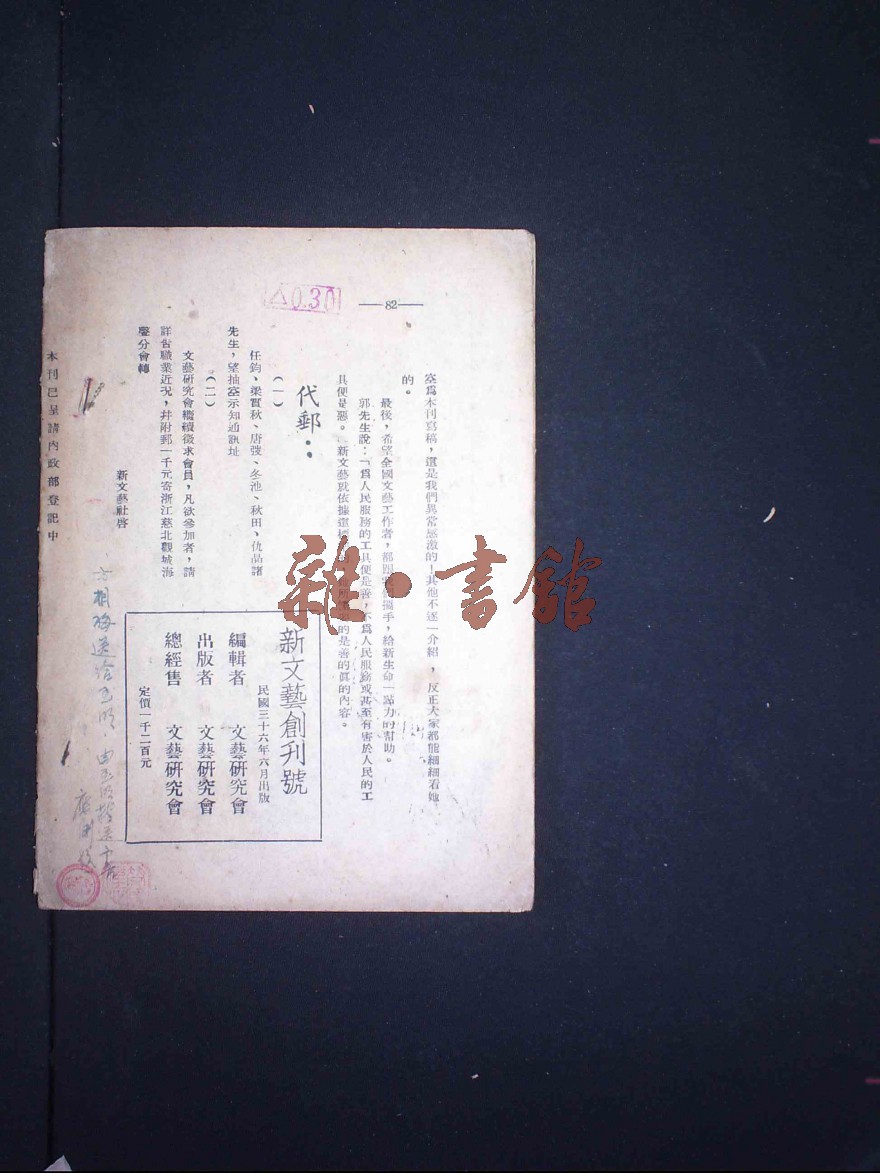 —82—
△0.30
空爲本刊寫稿，還是我們異常感激的！其他不逐一介紹，反正大家都能細細看她
的。
最後，希望全國文藝工作者，都跟我們攜手，給新生命一點力的幫助。
郭先生說：「爲人民服務的工具便是善，不爲人民服務或甚至有害於人民的工
具便是惡。新文藝就依據這
的是善的眞的內容。
代郵：
（一）
任鈞、梁實秋、唐弢、冬池、秋田、仇晶諸
先生，望抽空示知通訊址
（二）
文藝研究會繼續徵求會員，凡欲參加者，請
詳告職業近況，幷附郵一千元寄浙江慈北觀城海
聲分會轉
新文藝社啓
本刊已呈請內政部登記中
新文藝創刊號
民國三十六年六月出版
編輯者 文藝研究會
出版者 文藝研究會
總經售 文藝研究會
定價一千二百元
雜·書館